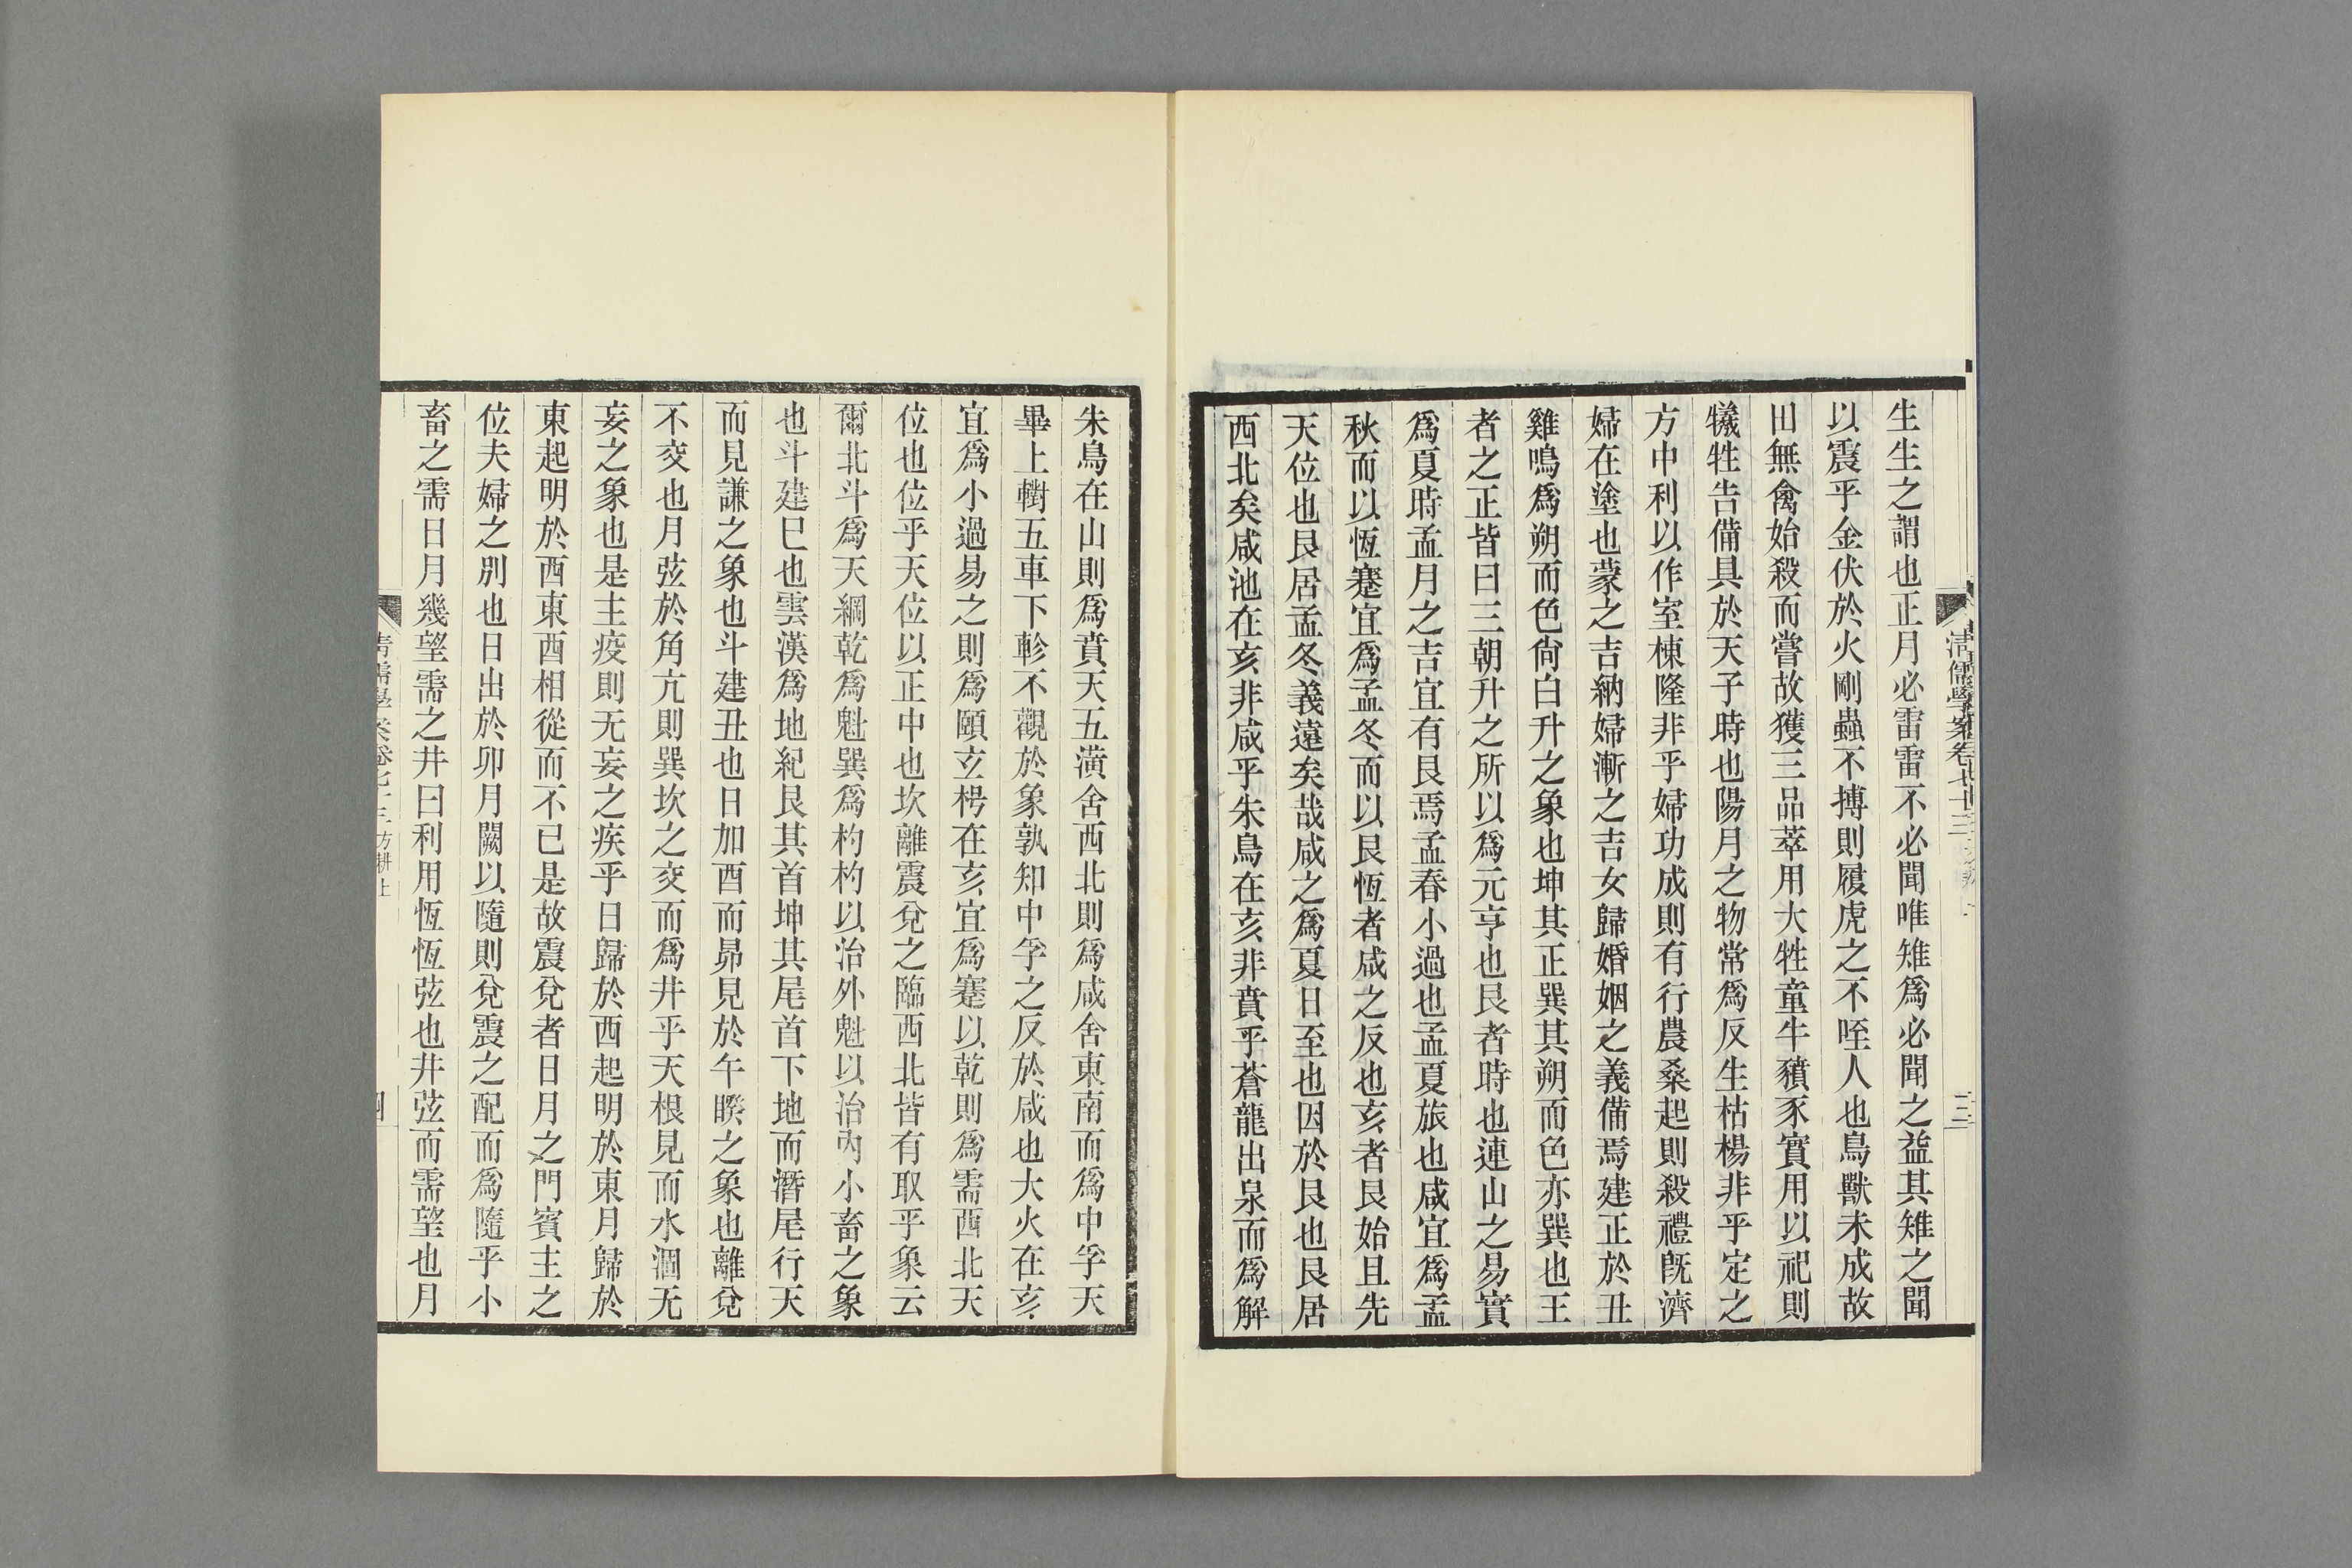 生生之謂也正月必雷雷不必聞唯雉爲必聞之益其雉之聞
以震乎金伏於火剛蟲不搏則履虎之不咥人也鳥獸未成故
田無禽始殺而嘗故獲三品萃用大牲童牛豶豕實用以祀則
犧牲告備具於天子時也陽月之物常爲反生枯楊非乎定之
方中利以作室棟隆非乎婦功成則有行農桑起則殺禮旣濟
婦在塗也蒙之吉納婦漸之吉女歸婚姻之義備焉建正於丑
雞鳴爲朔而色尙白升之象也坤其正巽其朔而色亦巽也王
者之正皆曰三朝升之所以爲元亨也艮者時也連山之易實
爲夏時孟月之吉宜有艮焉孟春小過也孟夏旅也咸宜爲孟
秋而以恆蹇宜爲孟冬而以艮恆者咸之反也亥者艮始且先
天位也艮居孟冬義遠矣哉咸之爲夏日至也因於艮也艮居
西北矣咸池在亥非咸乎朱鳥在亥非賁乎蒼龍出泉而爲解
清儒學案卷七十三
三
朱鳥在山則爲賁天五潢舍西北則爲咸舍東南而爲中孚天
畢上轛五車下軫不觀於象孰知中孚之反於咸也大火在亥
宜爲小過易之則爲頤玄枵在亥宜爲蹇以乾則爲需西北天
位也位乎天位以正中也坎離震兌之臨西北皆有取乎象云
爾北斗爲天綱乾爲魁巽爲杓杓以治外魁以治內小畜之象
也斗建巳也雲漢爲地紀艮其首坤其尾首下地而潛尾行天
而見謙之象也斗建丑也日加酉而昴見於午睽之象也離兌
不交也月弦於角亢則巽坎之交而爲井乎天根見而水涸无
妄之象也是主疫則无妄之疾乎日歸於西起明於東月歸於
東起明於西東西相從而不已是故震兌者日月之門賓主之
位夫婦之別也日出於卯月闕以隨則兌震之配而爲隨乎小
畜之需日月幾望需之井曰利用恆恆弦也井弦而需望也月
清儒學案卷七十三 方耕上
四